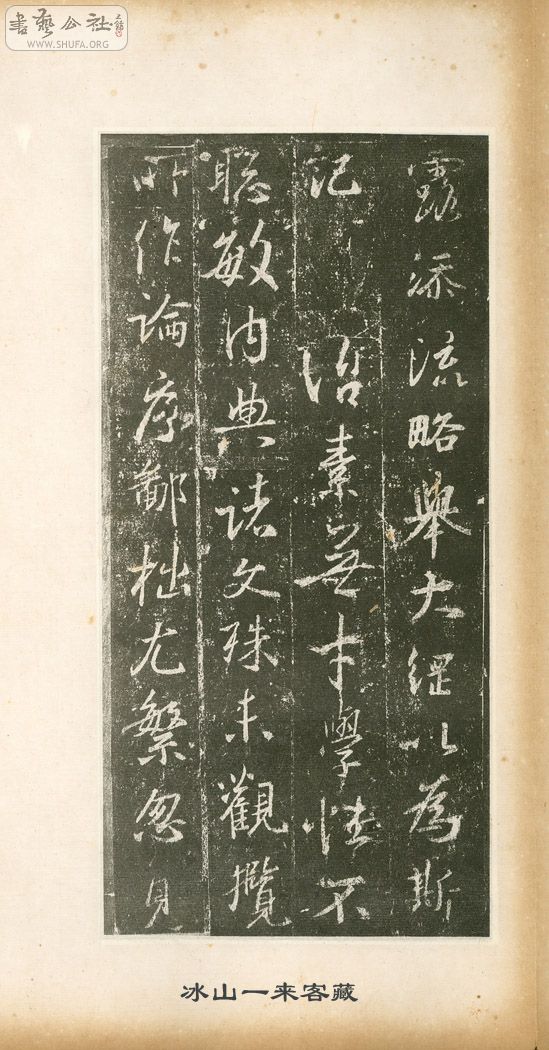 書藝公社
WWW.SHUFA.ORG
露添流略舉大綱以為斯
記 治素無才學性不
聡敏内典諸文殊未觀攬
所作論序鄙拙尤繁忽見
冰山一来客藏